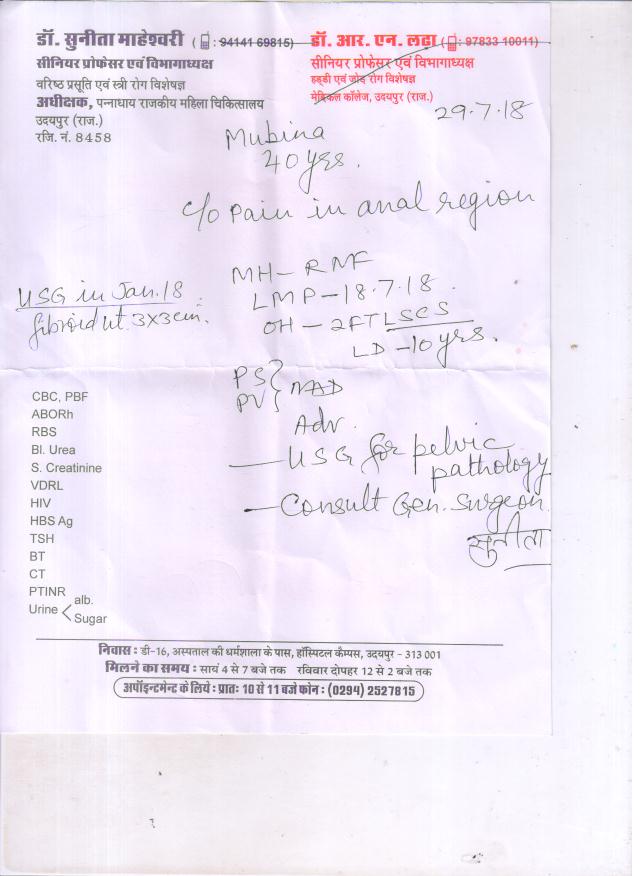 डॉ. सुनीता माहेश्वरी ( : 94141 69815)
सीनियर प्रोफेसर एवं विभागाध्यक्ष
वरिष्ठ प्रसूति एवं स्त्री रोग विशेषज्ञ
अधीक्षक, पन्नाधाय राजकीय महिला चिकित्सालय
उदयपुर (राज.)
रजि. नं. 8458
डॉ. आर. एन. लढा ( : 97833 10011)
सीनियर प्रोफेसर एवं विभागाध्यक्ष
हड्डी एवं जोड़ रोग विशेषज्ञ
मेडिकल कॉलेज, उदयपुर (राज.)
29.7.18
Mubina
40 yrs.
c/o Pain in anal region
MH - RMF
LMP - 18.7.18.
OH - 2FTLSCS
LD - 10 yrs.
USG in Jan. 18
fibroid ut 3x3cm.
PS } NAD
PV
Adv.
- USG for pelvic
pathology
- Consult Gen. surgeon
सुनीता
CBC, PBF
ABORh
RBS
Bl. Urea
S. Creatinine
VDRL
HIV
HBS Ag
TSH
BT
CT
PTINR
Urine < alb.
Sugar
निवास : डी-16, अस्पताल की धर्मशाला के पास, हॉस्पिटल कैम्पस, उदयपुर - 313 001
मिलने का समय : सायं 4 से 7 बजे तक रविवार दोपहर 12 से 2 बजे तक
अपॉइन्टमेन्ट के लिये : प्रातः 10 से 11 बजे फोन : (0294) 2527815